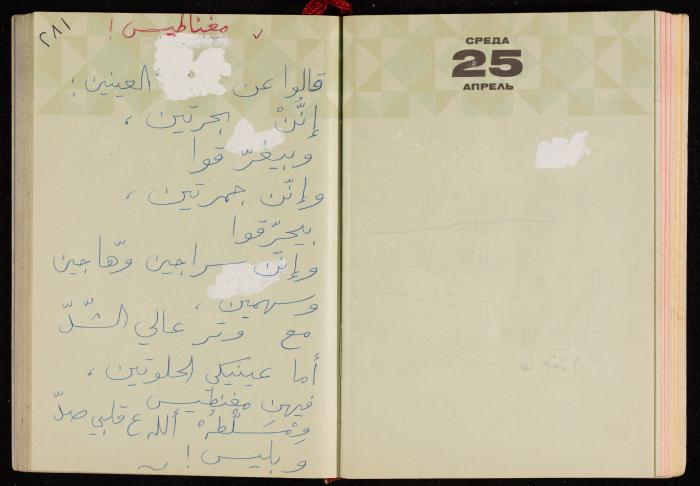 ٢٨١
مغناطيس !
قالوا عن العينين :
إنّنْ بحرتين ،
وبيغرّقوا
وإنّن جمرتين ،
بيحرّقوا
وإنّن سراجين وهّاجين
وسهمين ،
مع وتر عالي الشّدّ
أما عينيكي الحلوتين ،
فيهن مغنطيس
ومْسَلّطهُ أللـه ع قلبي صدّ
وبليس !
СРЕДА
25
АПРЕЛЬ